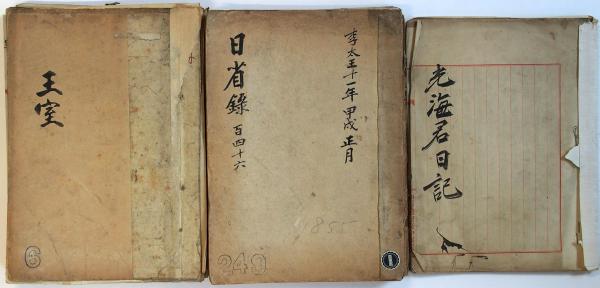 王室
6
李太王十一年甲戌正月
日省錄 百四十六
1855
249
光海君日記